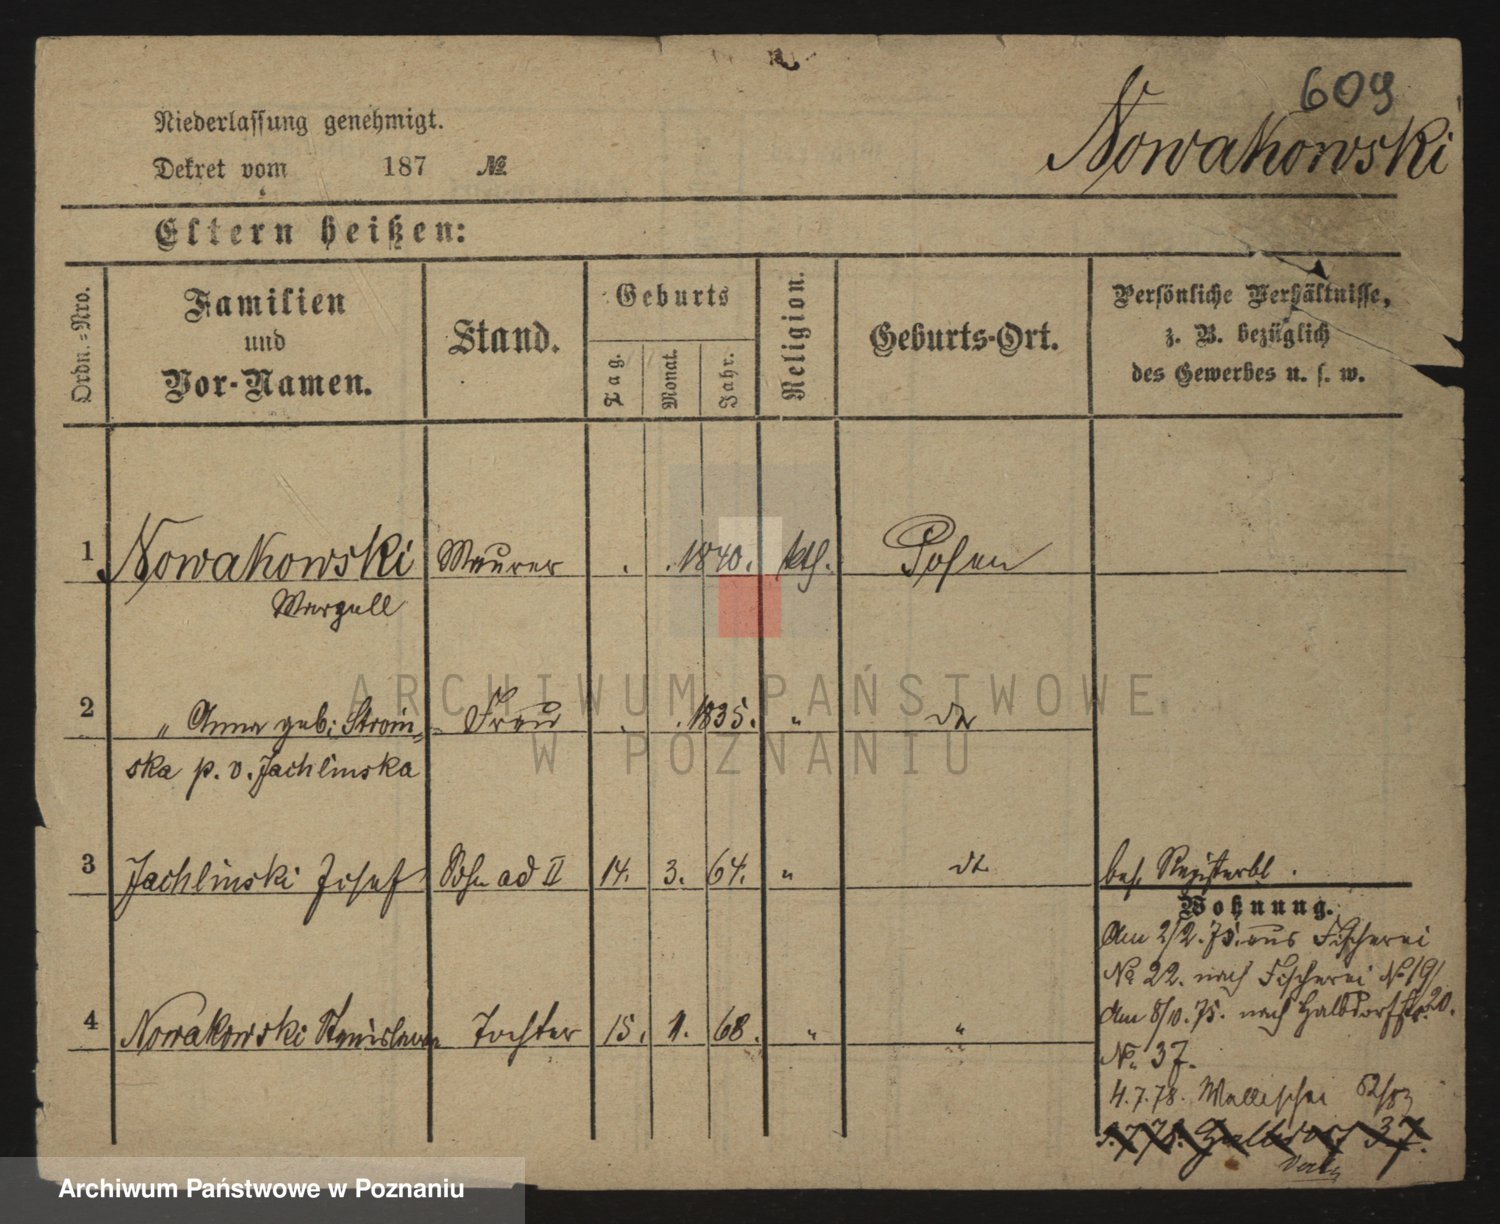 609
Nowakowski
Niederlassung genehmigt.
Dekret vom 187 №
Eltern heißen:
Ordn.=Nro.
Familien
und
Vor-Namen.
Stand.
Geburts
Tag.
Monat.
Jahr.
Religion.
Geburts-Ort.
Persönliche Verhältnisse,
z. B. bezüglich
des Gewerbes u. s. w.
1 Nowakowski Maurer . . 1840. kth. Posen
2 " Anna geb: Stroin= Frau . . 1835. " dto
ska p. v. Jachlinska
3 Jachlinski Josef Sohn ad II 14. 3. 64. " dt. bes. Registerbl.
Wohnung.
Am 2/2. 75. aus Fischerei
No 22. nach Fischerei No 19/
Am 8/10. 75. nach Halbdorfstr. 20.
4 Nowakowski Stanislawa Tochter 15. 1. 68. " "
No. 37.
4.7.78. Wallischei 82/83
7.78. Halbdorf 37.
ARCHIWUM PAŃSTWOWE
W POZNANIU
Archiwum Państwowe w Poznaniu